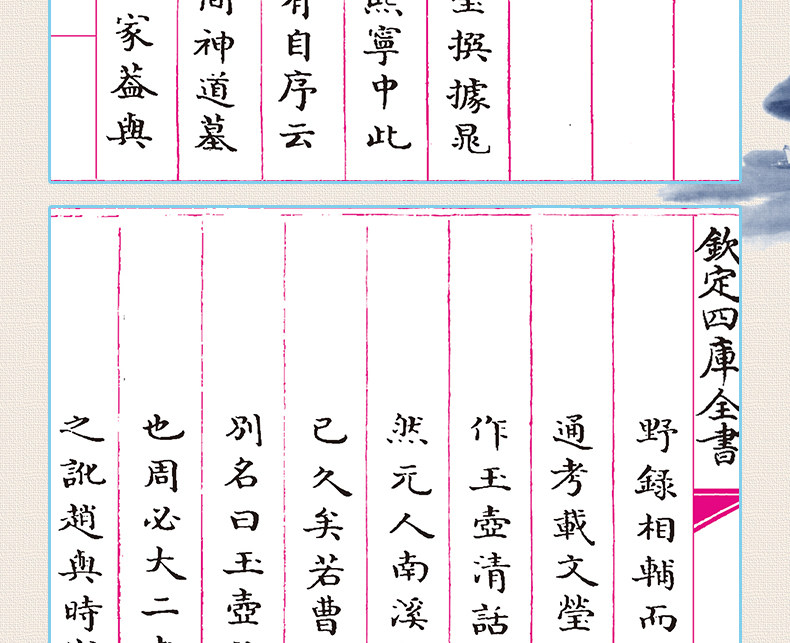 撰據晁
寧中此
有自序云
神道墓
家葢與
欽定四庫全書
野録相輔而
通考載文瑩
作玉壺清話
然元人南溪
已久矣若曹
别名曰玉壺
也周必大二
之訛趙與時